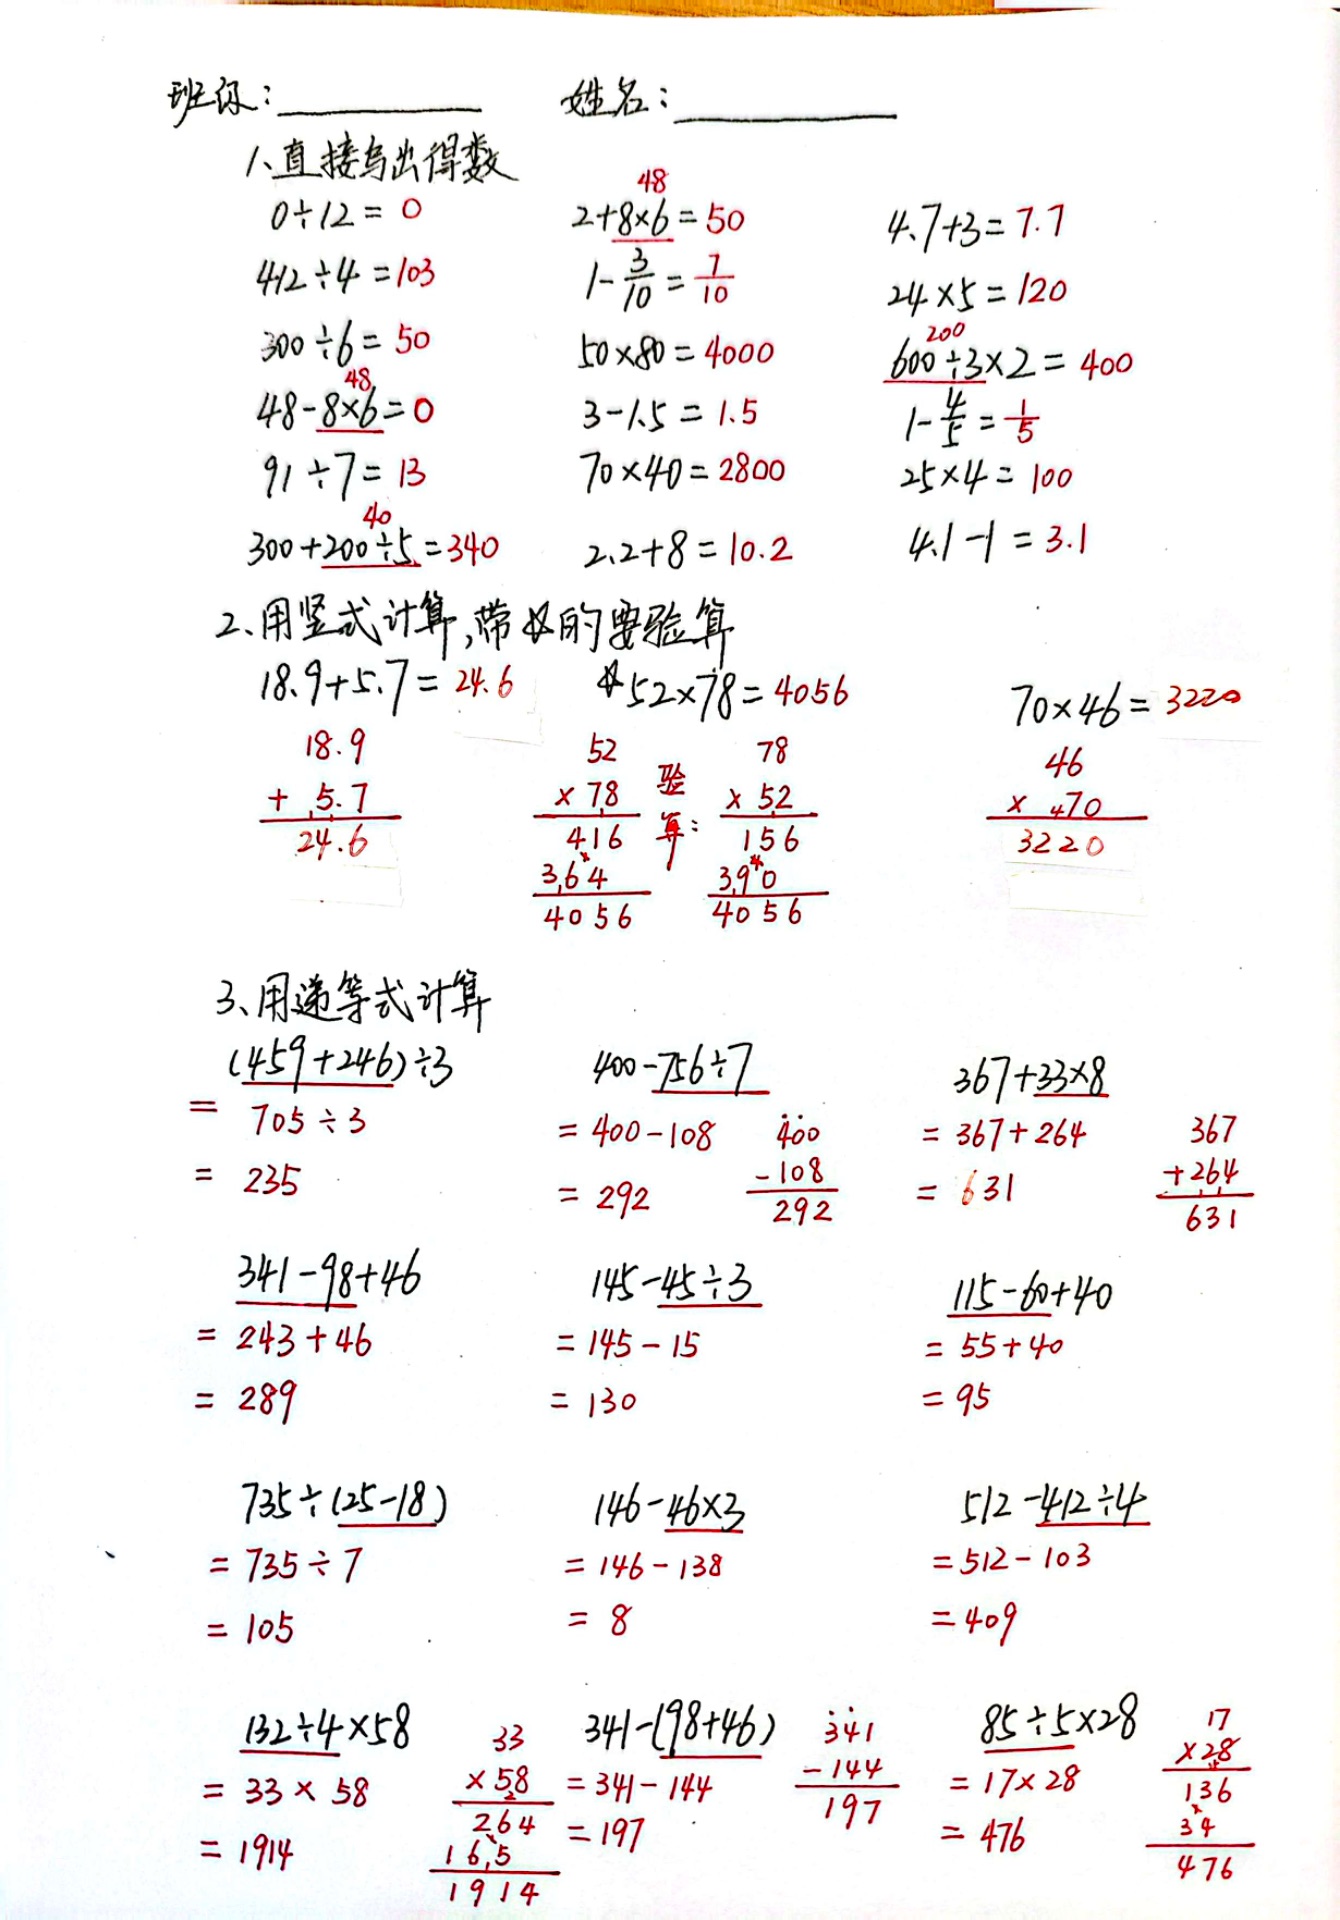 班级：__________ 姓名：__________
1、直接写出得数
48
0÷12= 0 2+8×6=50 4.7+3=7.7
412÷4=103 1-3/10=7/10 24×5=120
200
300÷6=50 50×80=4000 600÷3×2=400
48
48-8×6=0 3-1.5=1.5 1-4/5=1/5
91÷7=13 70×40=2800 25×4=100
40
300+200÷5=340 2.2+8=10.2 4.1-1=3.1
2、用竖式计算,带☆的要验算
18.9+5.7=24.6 ☆52×78=4056 70×46=3220
18.9 52 验 78 46
+ 5.7 ×78 算: ×52 × 470
24.6 416 156 3220
364 390
4056 4056
3、用递等式计算
(459+246)÷3 400-756÷7 367+33×8
= 705÷3 =400-108 400 =367+264 367
-108 +264
= 235 =292 292 =631 631
341-98+46 145-45÷3 115-60+40
= 243+46 =145-15 =55+40
= 289 =130 =95
735÷(25-18) 146-46×3 512-412÷4
=735÷7 =146-138 =512-103
=105 =8 =409
132÷4×58 33 341-(98+46) 341 85÷5×28 17
= 33×58 ×58 =341-144 -144 =17×28 ×28
264 197 136
= 1914 165 =197 =476 34
1914 476